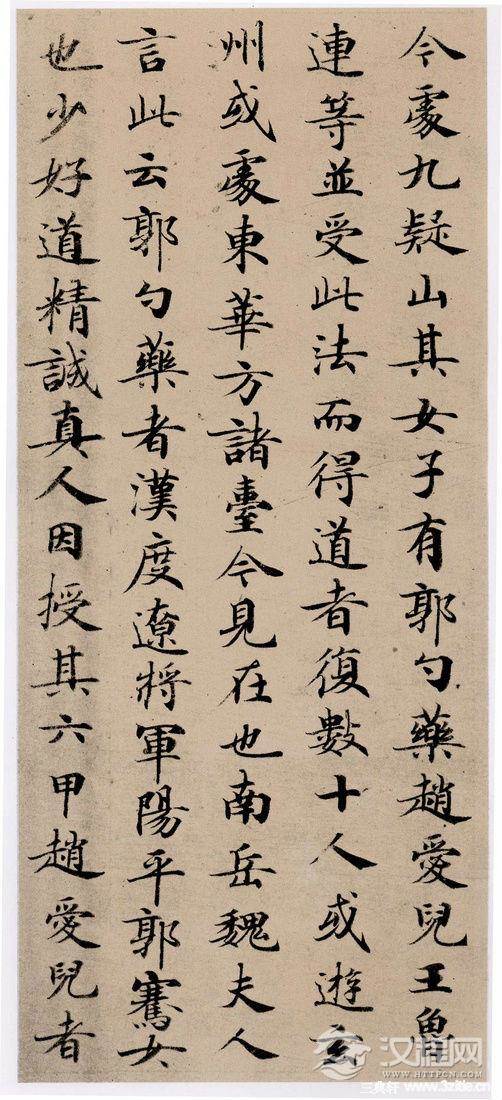 今處九疑山其女子有郭勺藥趙愛兒王魯
連等並受此法而得道者復數十人或遊玄
州或處東華方諸臺今見在也南岳魏夫人
言此云郭勺藥者漢度遼將軍陽平郭騫女
也少好道精誠真人因授其六甲趙愛兒者
汉程网
WWW.HTTPCN.COM
www.3zitie.cn